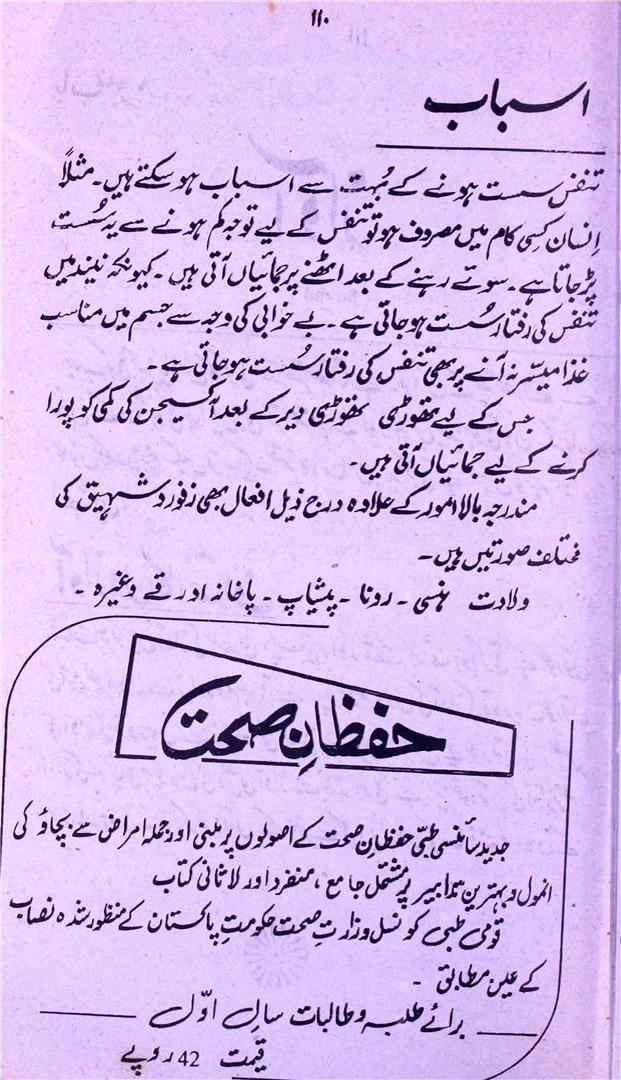 ۱۱۰
اسباب
تنفس سست ہونے کے بہُت سے اسباب ہوسکتے ہیں۔ مثلاً
اِنسان کِسی کام میں مصروف ہو تو تنفس کے لیے توجہ کم ہونے سے یہ سُست
پڑجاتا ہے۔ سوتے رہنے کے بعد اٹھنے پر جمائیاں آتی ہیں۔ کیونکہ نیند میں
تنفس کی رفتار سُست ہوجاتی ہے۔ بے خوابی کی وجہ سے جسم میں مناسب
غذا میسّر نہ آنے پر بھی تنفس کی رفتار سُست ہوجاتی ہے۔
جس کے لیے تھوڑی تھوڑی دیر کے بعد آکسیجن کی کمی کو پورا
کرنے کے لیے جمائیاں آتی ہیں۔
مندرجہ بالا امور کے علاوہ درج ذیل افعال بھی زفور و شہیق کی
مختلف صورتیں ہیں۔
ولادت ہنسی۔ رونا۔ پیشاپ۔ پاخانہ اور قے وغیرہ۔
حفظانِ صحت
جدید سائنسی طبّی حفظانِ صحت کے اصولوں پر مبنی اور جملہ امراض سے بچاؤ کی
انمول و بہترین تدابیر پر مشتمل جامع، منفرد اور لاثانی کتاب
قومی طبی کونسل وزارتِ صحت حکومتِ پاکستان کے منظور شدہ نصاب
کے عین مطابق۔
برائے طلبہ و طالبات سالِ اوّل
قیمت 42 روپے